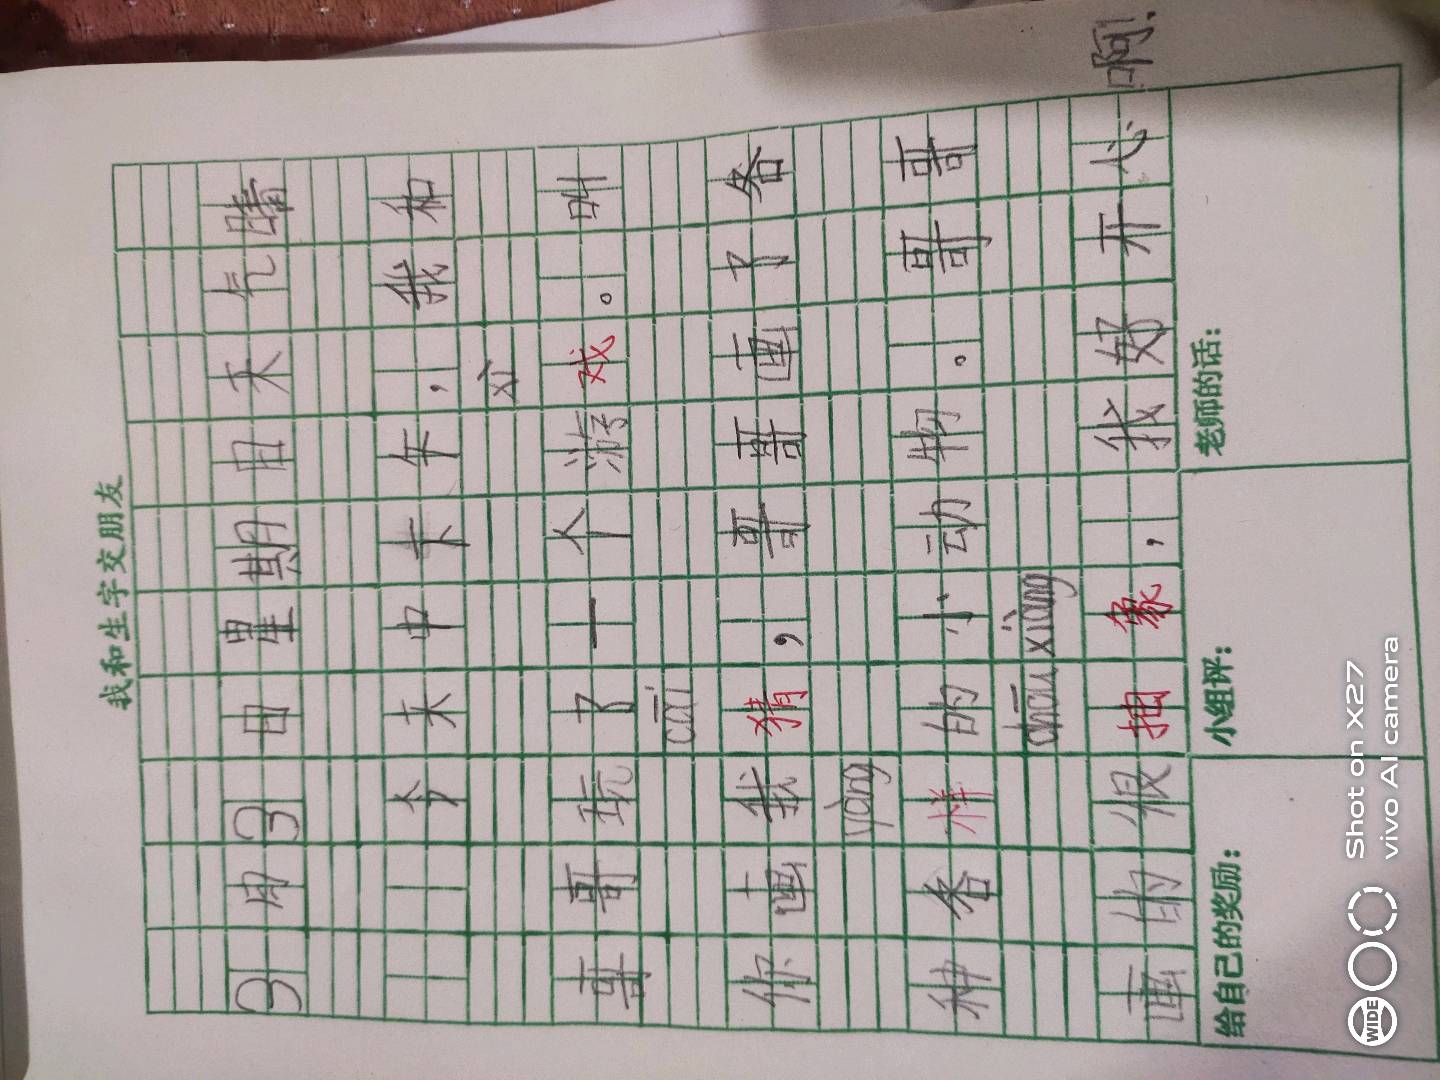 我和生字交朋友
3月3日星期日天气晴
今天中午，我和
xì
哥哥玩了一个游戏。叫
cāi
你画我猜，哥哥画了各
yàng
种各样的小动物。哥哥
chōu xiàng
画的很抽象，我好开心啊！
给自己的奖励： 小组评： 老师的话：
WIDE Shot on X27
vivo AI camera